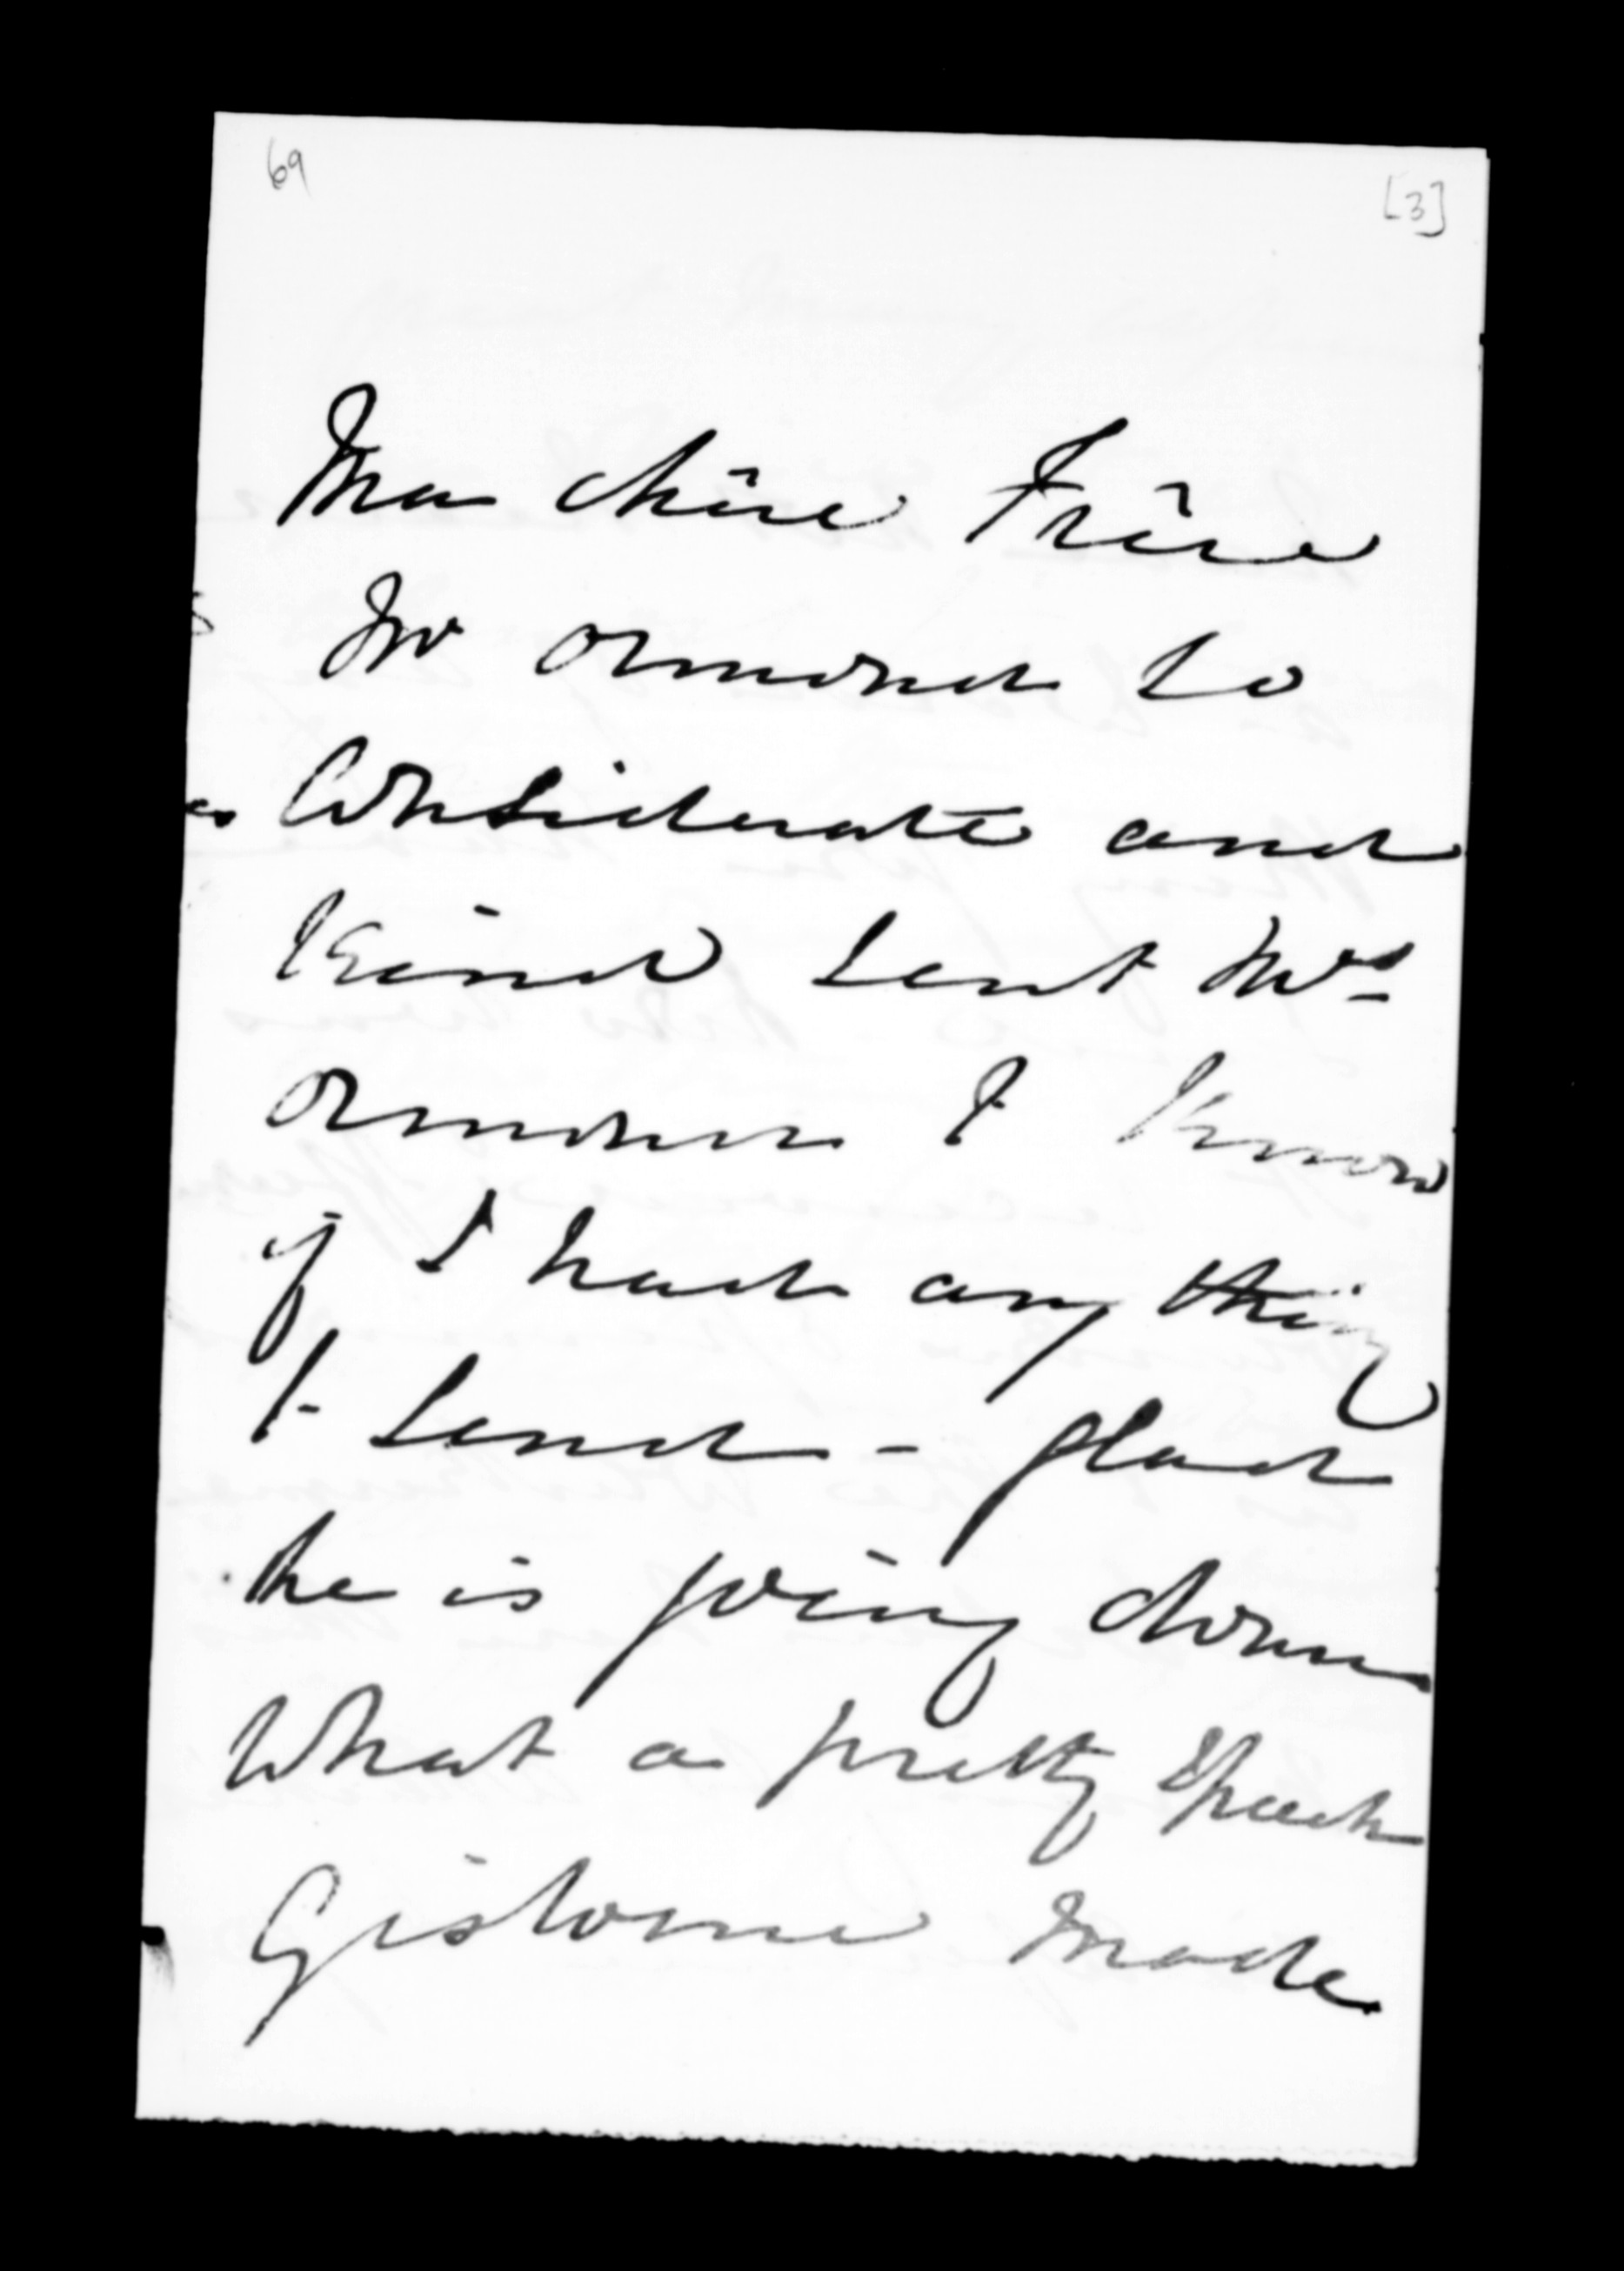 69
[3]
Ma chère Frère
Mr Ormond so
Considerate and
Kind sent Mrs
Ormond I know
if I had any thing
to send - glad
he is going down
What a pretty speech
Gisborne made